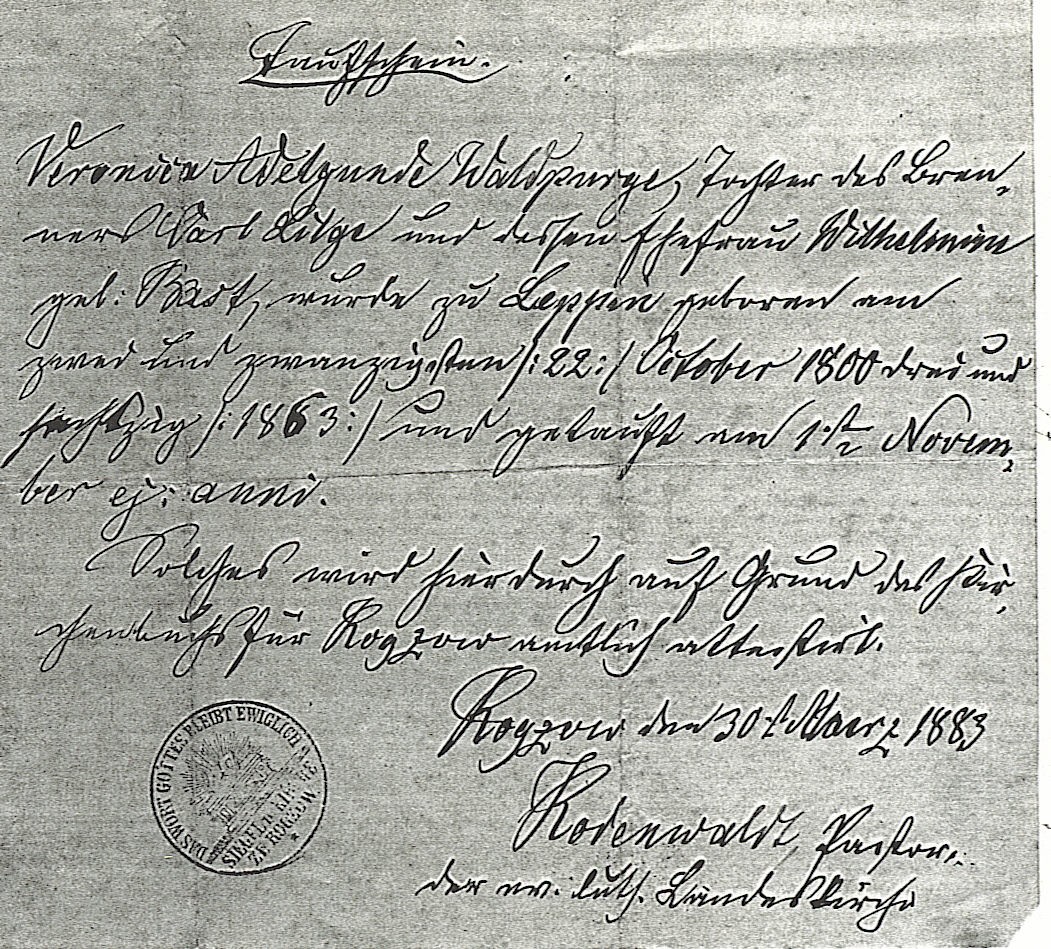 Taufschein.
Veronica Adelgunde Waldpurge, Tochter des Bren-
ners Carl Lüge und dessen Ehefrau Wilhelmine
geb: Bast, wurde zu Leppin geboren am
zwei und zwanzigsten /:22:/ October 1800 drei und
sechszig /:1863:/ und getauft am 1st Novem-
ber ej: anni.
Solches wird hierdurch auf Grund des Kir-
chenbuchs für Rogzow amtlich attestirt.
Rogzow den 30t Maerz 1883
Rodenwaldt, Pastor.
der ev. luth. Landeskirche
DAS WORT GOTTES BLEIBT EWIGLICH
SIEGEL D. KIRCHE
ZU ROGZOW